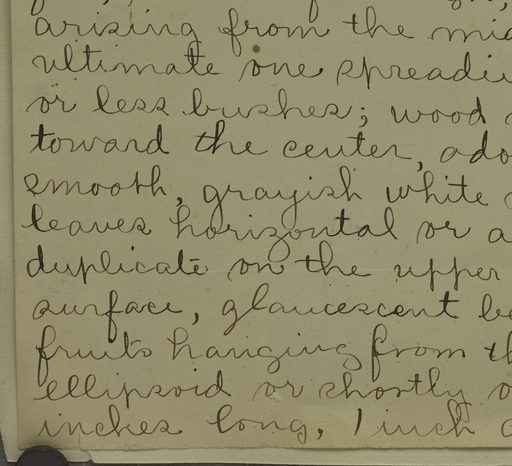 arising from the mid
ultimate one spreadin
or less bushes; wood
toward the center, ado
smooth, grayish white
leaves horizontal or a
duplicate on the upper
surface, glaucescent be
fruits hanging from th
ellipsoid or shortly o
inches long, 1 inch